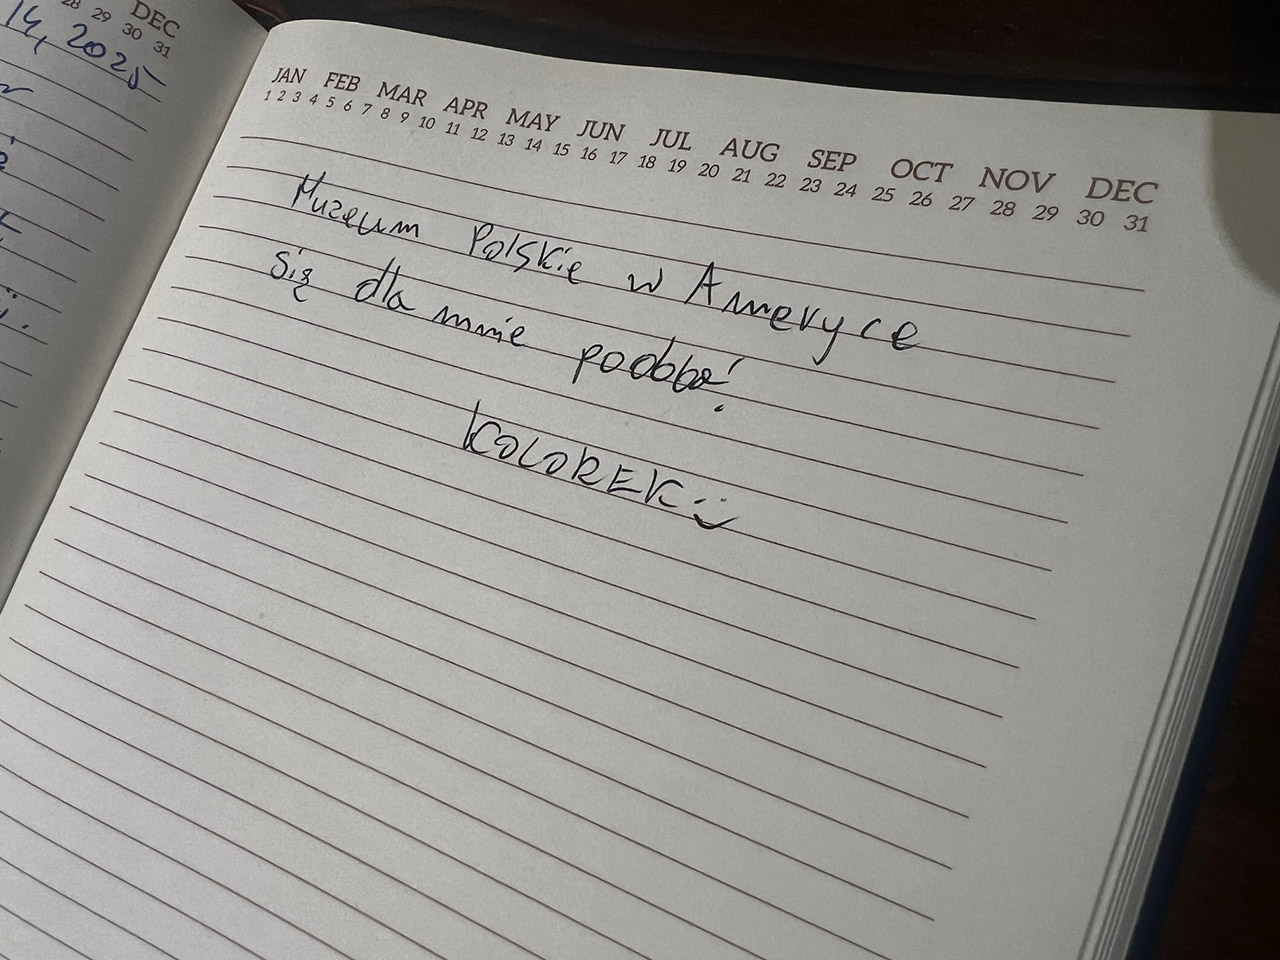 DEC
28 29 30 31
14, 2025
JAN FEB MAR APR MAY JUN JUL AUG SEP OCT NOV DEC
1 2 3 4 5 6 7 8 9 10 11 12 13 14 15 16 17 18 19 20 21 22 23 24 25 26 27 28 29 30 31
Muzeum Polskie w Ameryce
Się dla mnie
KOLOREK